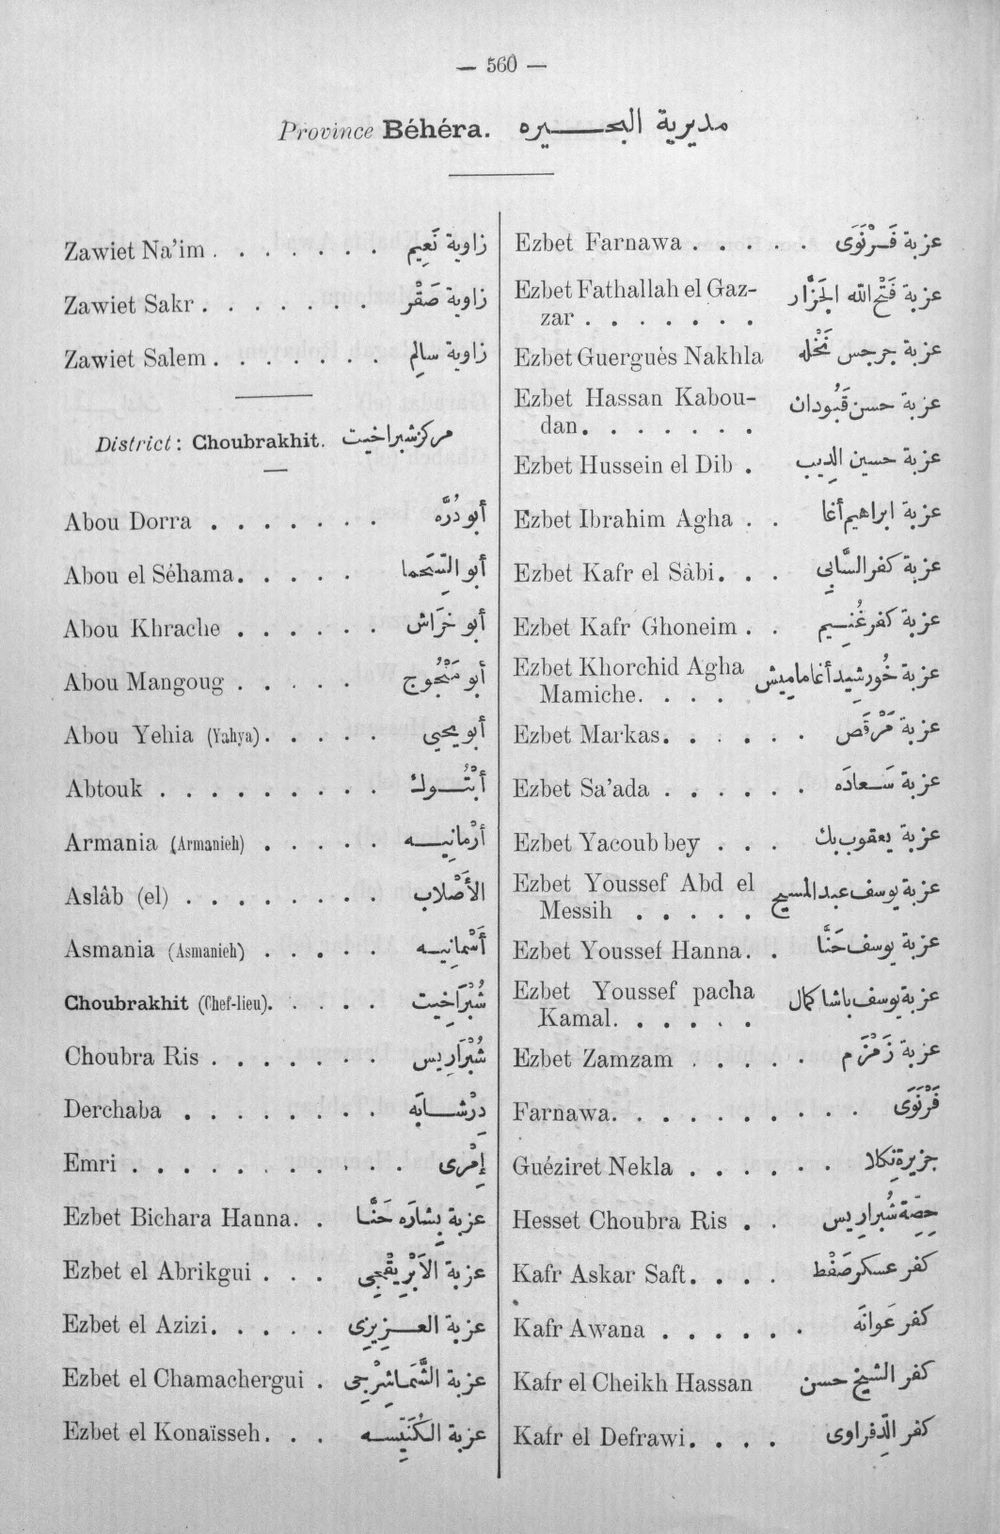 — 560 —
Province Béhéra. مديرية البحـــيره
Zawiet Na'im . . . . . . . زاوية نَعِيم
Zawiet Sakr . . . . . . . زاوية صَقْر
Zawiet Salem . . . . . . . زاوية سالِم
District : Choubrakhit. مركز شبراخيت
Abou Dorra . . . . . . . أبو دُرَّه
Abou el Séhama. . . . . أبو السِّحَما
Abou Khrache . . . . . . أبو خَرَاش
Abou Mangoug . . . . . أبو مَنْجُوج
Abou Yehia (Yahya). . . . . أبو يحيى
Abtouk . . . . . . . . . أبْتُـــوك
Armania (Armanieh) . . . . . أرْمانِيـــه
Aslâb (el) . . . . . . . . الأصْلاب
Asmania (Asmanieh) . . . . . أسْمانيـــه
Choubrakhit (Chef-lieu). . . . . شُبْرَاخِيت
Choubra Ris . . . . . . . شُبْرَارِيس
Derchaba . . . . . . . . دِرْشـــابَه
Emri . . . . . . . . . . . إِمْرِى
Ezbet Bichara Hanna. . عزبة بِشَارَه حَنَّا
Ezbet el Abrikgui . . . عزبة الاَبْرِيقْجِى
Ezbet el Azizi. . . . . عزبة العـــزِيزِى
Ezbet el Chamachergui . عزبة الشَّمَاشِرْجِى
Ezbet el Konaïsseh. . . . عزبة الكُنَيِّسـه
Ezbet Farnawa . . . . . عزبة فَـرْنَوَى
Ezbet Fathallah el Gaz- عزبة فَتْح الله الجَزَّار
zar . . . . . . .
Ezbet Guerguès Nakhla عزبة جرجس نَخْله
Ezbet Hassan Kabou- عزبة حسن قَبُودان
dan. . . . . . .
Ezbet Hussein el Dib . عزبة حسين الدِيب
Ezbet Ibrahim Agha . . عزبة ابراهيم أغا
Ezbet Kafr el Sàbi. . . عزبة كفر السَّابِي
Ezbet Kafr Ghoneim . . عزبة كفر غُنـيم
Ezbet Khorchid Agha عزبة خُورشِيد أغا ماميش
Mamiche. . . . .
Ezbet Markas. . . . . . عزبة مَرْقَص
Ezbet Sa'ada . . . . . . عزبة سَـعادَه
Ezbet Yacoub bey . . . عزبة يعقوب بك
Ezbet Youssef Abd el عزبة يوسف عبد المسيح
Messih . . . . .
Ezbet Youssef Hanna. . عزبة يوسف حَنَّا
Ezbet Youssef pacha عزبة يوسف باشا كمال
Kamal. . . . . .
Ezbet Zamzam . . . . . عزبة زَمْزَم
Farnawa. . . . . . . . . فَرْنَوَى
Guéziret Nekla . . . . . . جزيرة نِكلا
Hesset Choubra Ris . . حِصّة شُبرارِيس
Kafr Askar Saft. . . . كفر عسكر صَفْط
Kafr Awana . . . . . . كفر عَوانَه
Kafr el Cheikh Hassan كفر الشيخ حسن
Kafr el Defrawi. . . . كفر الدِّفراوى